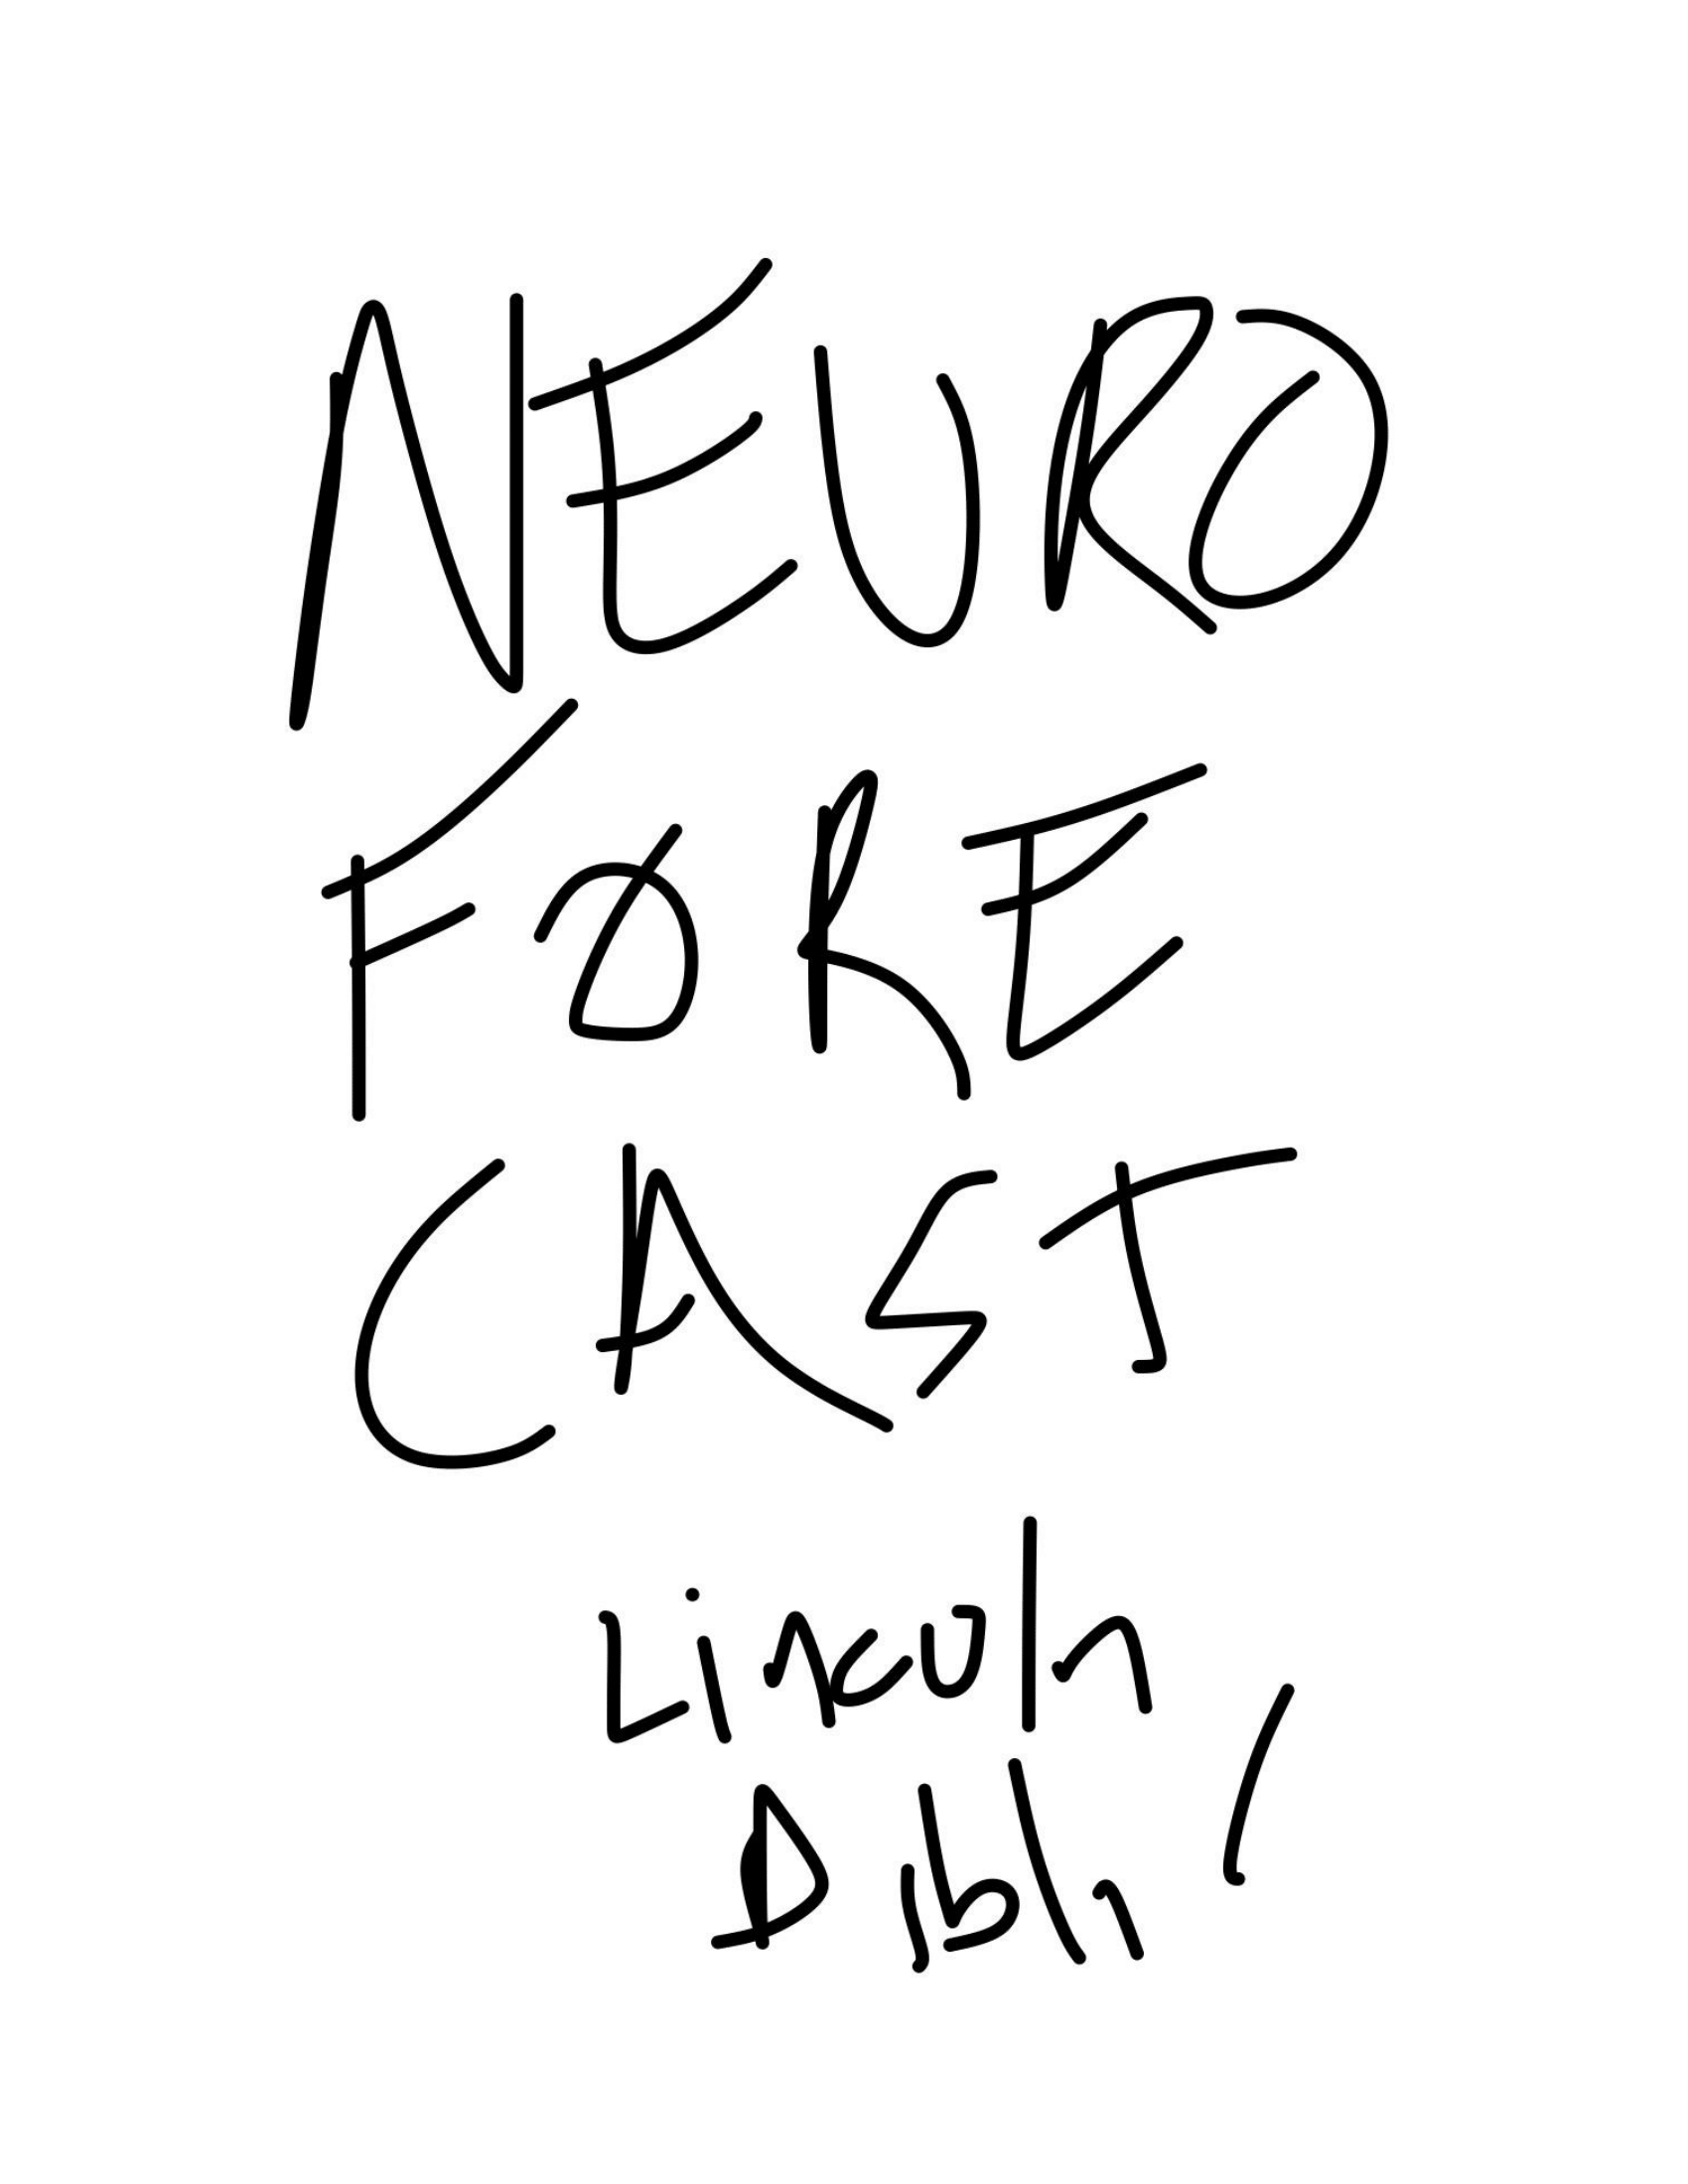 NEURO
FORE
CAST
Lincoln